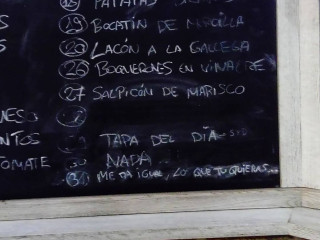 19 BOCATÍN DE MORCILLA
20 LACÓN A LA GALLEGA
26 BOQUERNES EN VINAGRE
27 SALPICÓN DE MARISCO
NESO
NTOS TAPA DEL DÍA
TOMATE NADA
ME DA IGUAL, LO QUE TU QUIERAS...